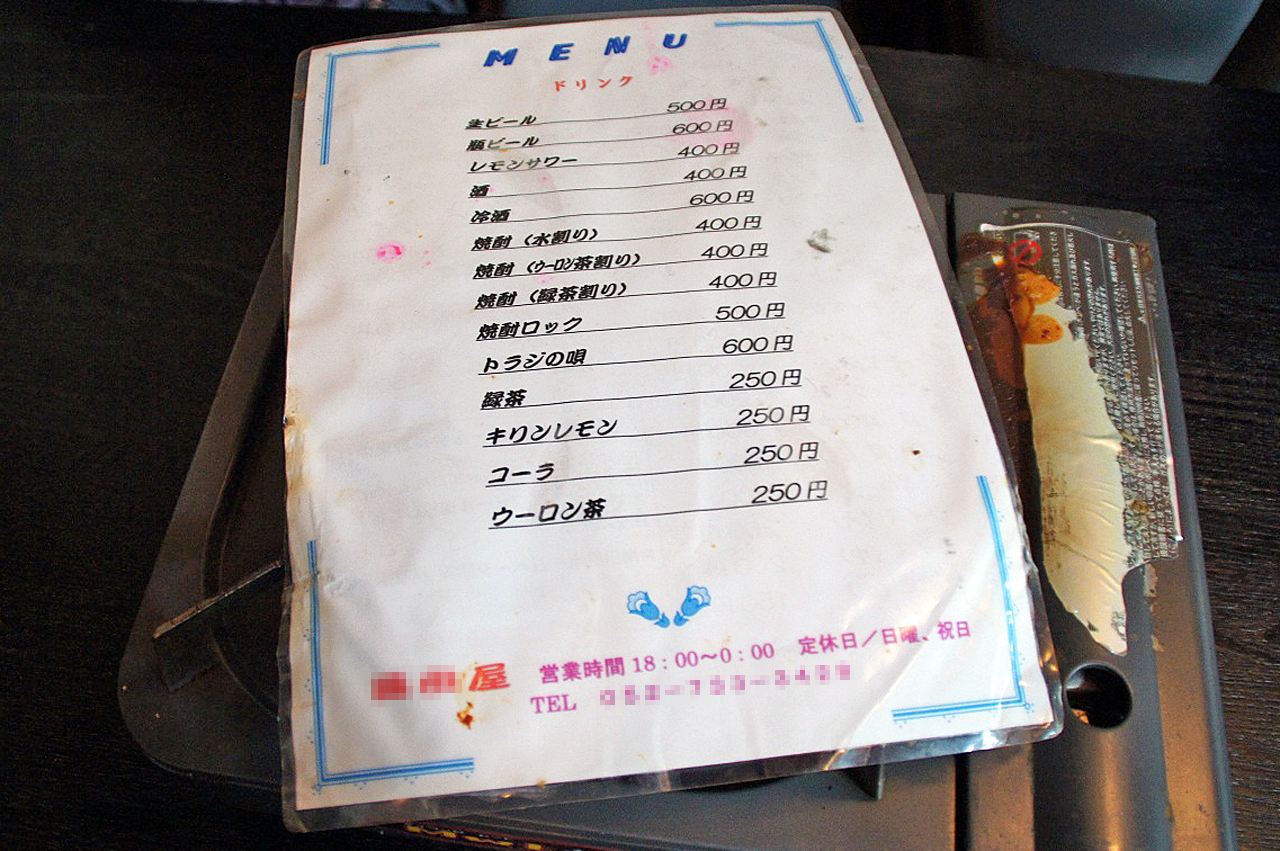 MENU
ドリンク
生ビール 500円
瓶ビール 600円
レモンサワー 400円
酒 400円
冷酒 600円
焼酎（水割り） 400円
焼酎（ウーロン茶割り） 400円
焼酎（緑茶割り） 400円
焼酎ロック 500円
トラジの唄 600円
緑茶 250円
キリンレモン 250円
コーラ 250円
ウーロン茶 250円
屋 営業時間18：00～0：00 定休日／日曜、祝日
TEL